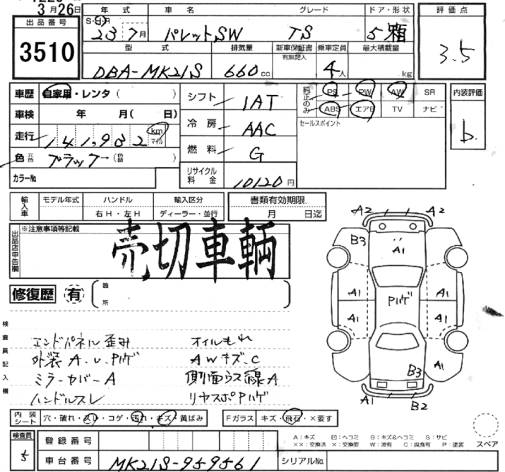 3月26日
出品番号 3510
年式 23年7月
車名 パレットSW
グレード TS
ドア・形状 5 箱
評価点 3.5
型式 DBA-MK21S
排気量 660cc
新車保証書 有効期間人
乗車定員 4人
最大積載量 kg
車歴 自家用・レンタ ( )
車検 年 月( 日)
走行 141,982 km マイル
色 ブラック
カラーNo
シフト 1AT
冷房 AAC
燃料 G
リサイクル料金 10120円
純正のみ PS PW AW SR
ABS エアB TV ナビ
セールスポイント
内装評価 b
輸入車 モデル年式 ハンドル 右H・左H 輸入区分 ディーラー・並行
書類有効期限 月 日迄
出品店申告欄 ※注意事項等記載
売切車輌
修復歴 有 箇所
検査員記入欄
エンドパネル歪み オイルもれ
外装A.U.Pハゲ AWキズ.C
ミラーカバーA 側面ウス線A
ハンドルスレ リヤスポPハゲ
A2 A2
B3 A1
A1 A1
A1 Pハゲ A1
A1 B3 A1
A1 B2
内装シート 穴・破れ・スレ・コゲ・汚れ・キズ・黄ばみ
Fガラス キズ・飛石・×要す
スペア
検査員 5
登録番号
車台番号 MK21S-959561
シリアルNo.
A:キズ E:エヘコミ B:キズ&ヘコミ S:サビ
××:交換済 ×:交換要 W:波有 C:腐食有 P:塗装